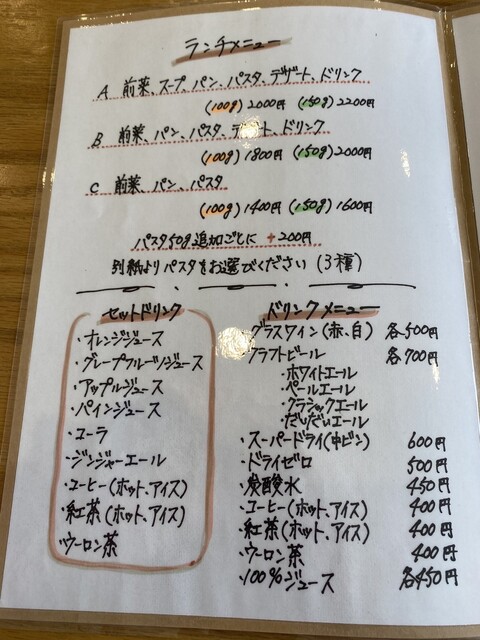 ランチメニュー
A 前菜、スープ、パン、パスタ、デザート、ドリンク
(100g) 2000円 (150g) 2200円
B 前菜、パン、パスタ、デザート、ドリンク
(100g) 1800円 (150g) 2000円
C 前菜、パン、パスタ
(100g) 1400円 (150g) 1600円
パスタ50g追加ごとに +200円
別紙よりパスタをお選びください (3種)
セットドリンク
・オレンジジュース
・グレープフルーツジュース
・アップルジュース
・パインジュース
・コーラ
・ジンジャーエール
・コーヒー(ホット、アイス)
・紅茶(ホット、アイス)
・ウーロン茶
ドリンクメニュー
・グラスワイン(赤、白) 各500円
・クラフトビール 各700円
・ホワイトエール
・ペールエール
・クラシックエール
・だいだいエール
・スーパードライ(中ビン) 600円
・ドライゼロ 500円
・炭酸水 450円
・コーヒー(ホット、アイス) 400円
・紅茶(ホット、アイス) 400円
・ウーロン茶 400円
・100%ジュース 各450円